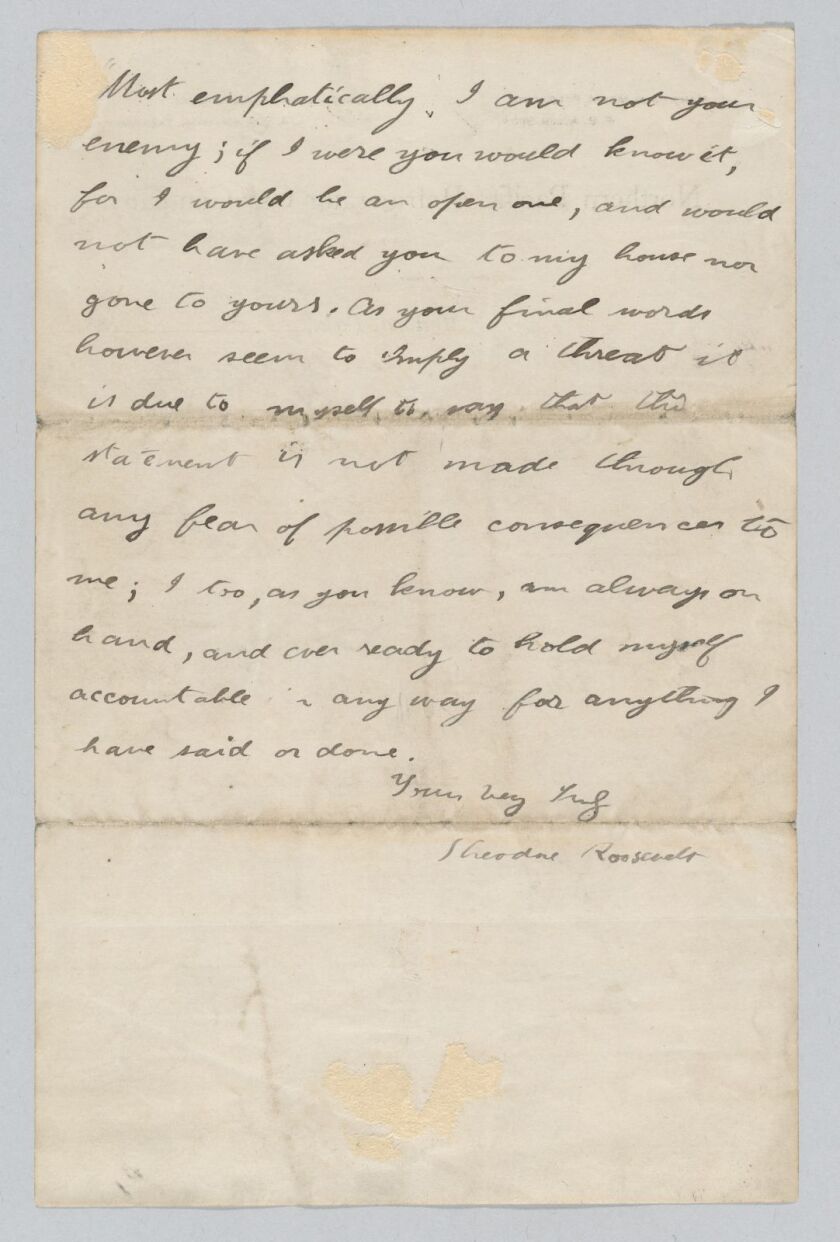 Most emphatically I am not your
enemy; if I were you would know it,
for I would be an open one, and would
not have asked you to my house nor
gone to yours. As your final words
however seem to imply a threat it
is due to myself to say that this
statement is not made through
any fear of possible consequences to
me; I too, as you know, am always on
hand, and ever ready to hold myself
accountable in any way for anything I
have said or done.
Yours very truly
Theodore Roosevelt